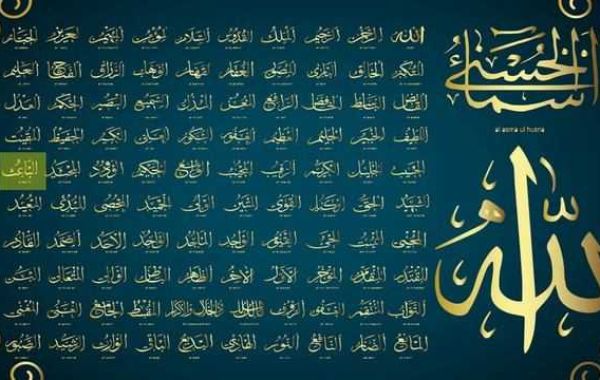 الأسماء الحسنى
al asma ul husna
الله
الله الرحمن الرحيم الملك القدوس السلام المؤمن المهيمن العزيز الجبار
المتكبر الخالق البارئ المصور الغفار القهار الوهاب الرزاق الفتاح العليم
القابض الباسط الخافض الرافع المعز المذل السميع البصير الحكم العدل
اللطيف الخبير الحليم العظيم الغفور الشكور العلي الكبير الحفيظ المقيت
الحسيب الجليل الكريم الرقيب المجيب الواسع الحكيم الودود المجيد الباعث
الشهيد الحق الوكيل القوي المتين الولي الحميد المحصي المبدئ المعيد
المحيي المميت الحي القيوم الواجد الماجد الواحد الاحد الصمد القادر
المقتدر المقدم المؤخر الأول الآخر الظاهر الباطن الوالي المتعال
التواب المنتقم العفو الرؤوف مالك الملك ذو الجلال والإكرام المقسط الجامع الغني المغني
المانع الضار النافع النور الهادي البديع الباقي الوارث الرشيد الصبور